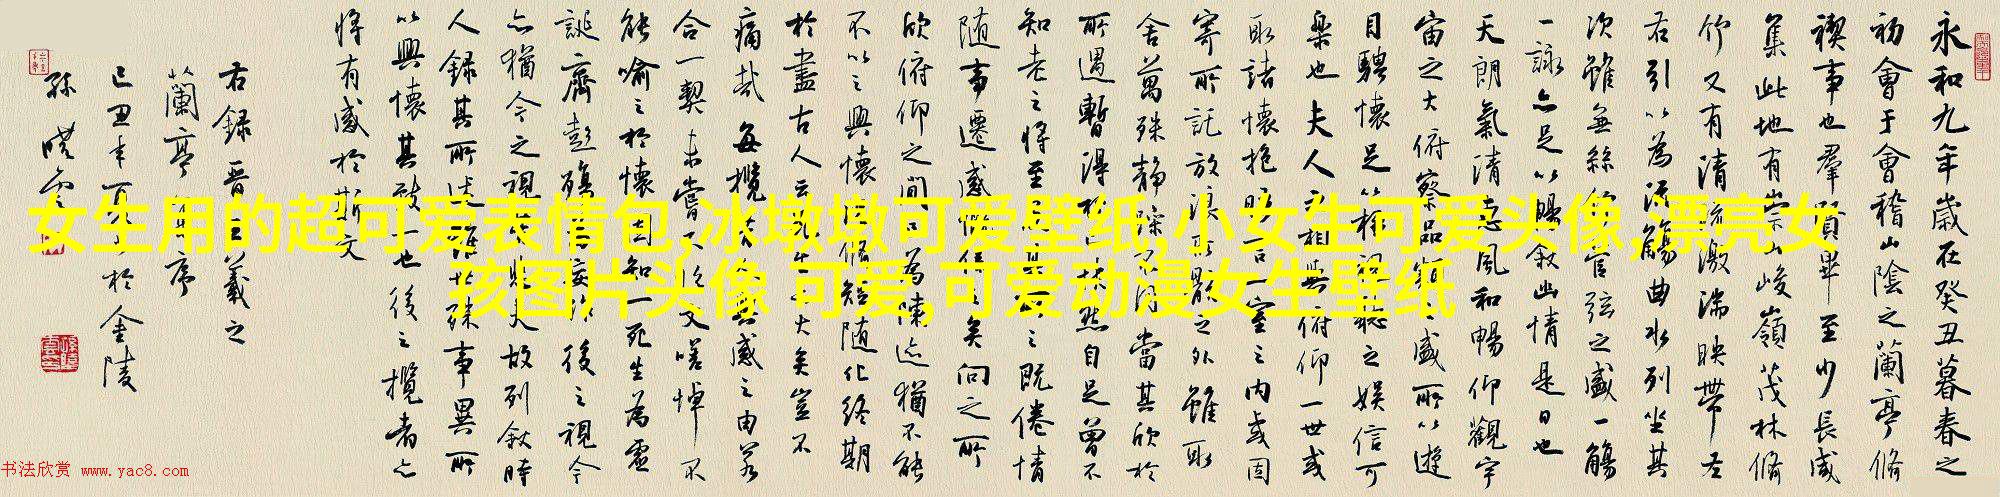 永和九年歲在癸丑暮春之
初會于會稽山陰之蘭亭脩
禊事也羣賢畢至少長咸
集此地有崇山峻嶺茂林脩
竹又有清流激湍映帶左
右引以為流觴曲水列坐其
次雖無絲竹管弦之盛一觴
一詠亦足以暢敘幽情是日也
天朗氣清惠風和暢仰觀宇
宙之大俯察品類之盛所以遊
目騁懷足以極視聽之娛信可
樂也夫人之相與俯仰一世或
取諸懷抱晤言一室之內或因
寄所託放浪形骸之外雖取
舍萬殊靜躁不同當其欣於
所遇暫得於己怏然自足曾不
知老之將至及其所之既倦情
隨事遷感慨係之矣向之所
欣俯仰之間已為陳迹猶不能
不以之興懷況脩短隨化終期
於盡古人云死生亦大矣豈不
痛哉每攬昔人興感之由若
合一契未嘗不臨文嗟悼不
能喻之於懷固知一死生為虛
誕齊彭殤為妄作後之視今
亦猶今之視昔悲夫故列敘時
人錄其所述雖世殊事異所
以興懷其致一也後之攬者亦
將有感於斯文
右錄晉王羲之
蘭亭集序
己丑年夏於金陵
孫曉雲
女生用的超可爱表情包,冰墩墩可爱壁纸,小女生可爱头像,漂亮女
孩图片头像 可爱,可爱动漫女生壁纸
书法欣赏 www.yac8.com